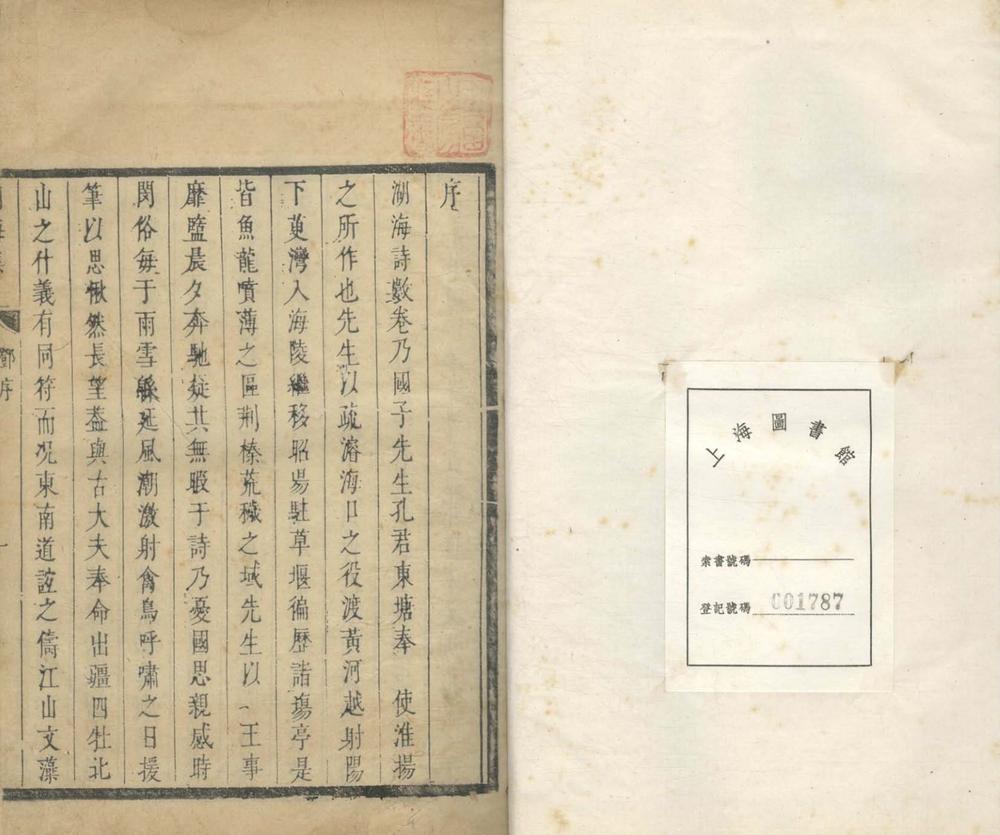 上海圖書館
索書號碼
登記號碼 001787
序
湖海詩數卷乃國子先生孔君東塘奉 使淮揚
之所作也先生以疏濬海口之役渡黃河越射陽
下茰灣入海陵繼移昭場駐草堰徧歷諸場亭是
皆魚龍噴薄之區荆榛荒穢之域先生以 王事
靡盬晨夕奔馳莛共無暇于詩乃憂國思親感時
閔俗每于雨雪緜延風潮激射禽鳥呼嘯之日援
筆以思愀然長望葢與古大夫奉命出疆四牡北
山之什義有同符而况東南道誼之儔江山文藻
鄧序
一